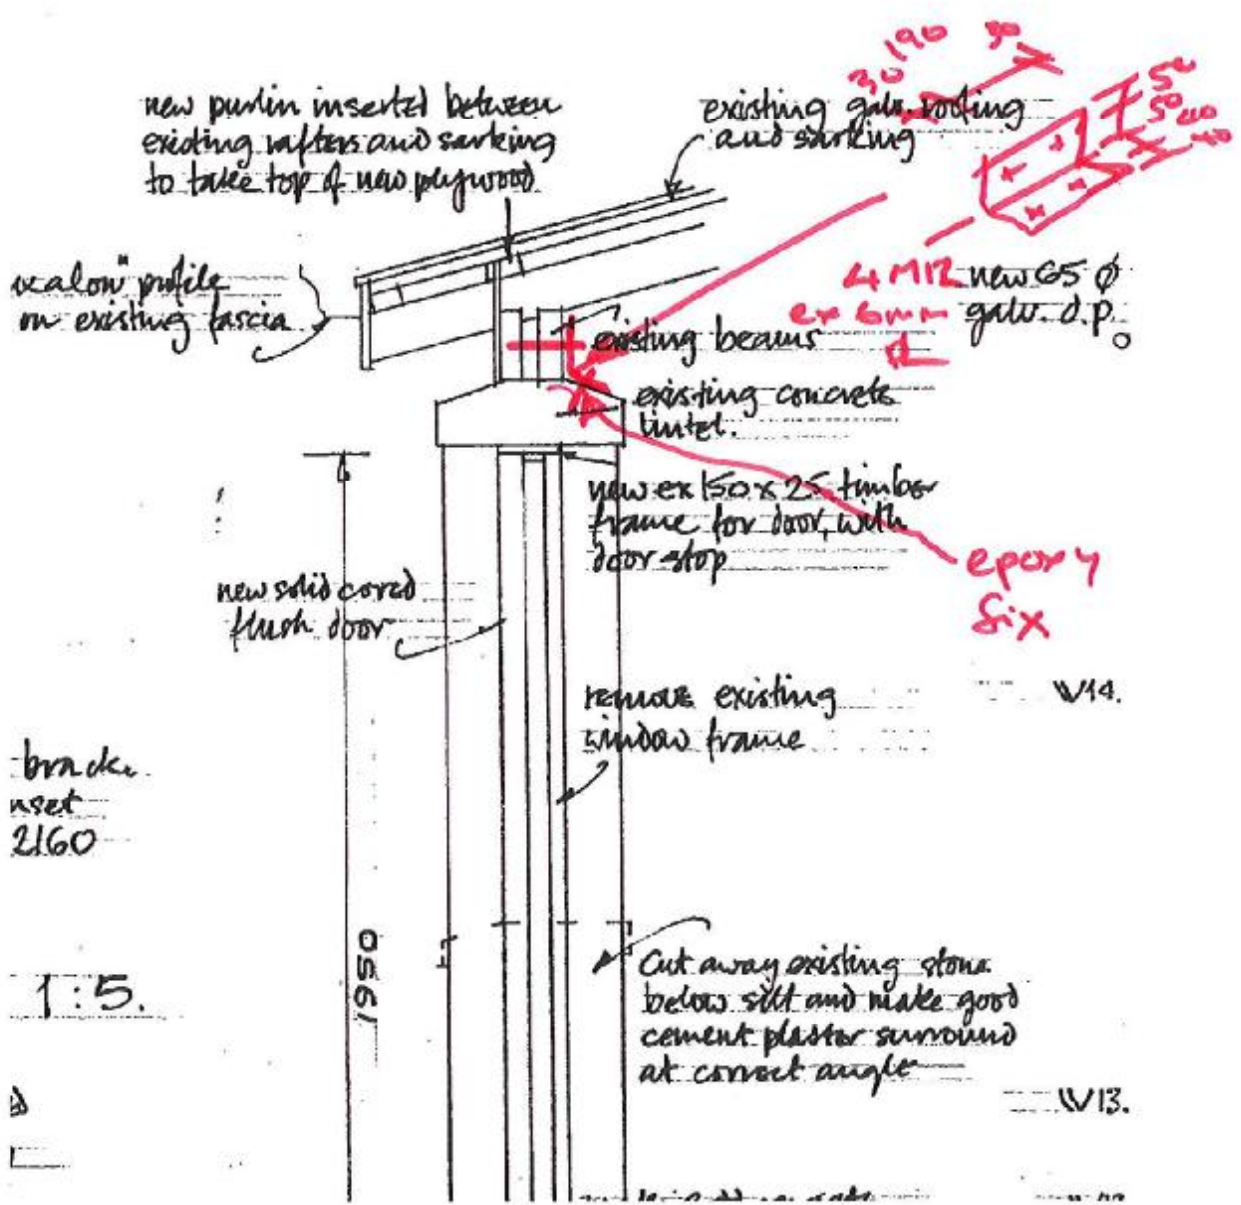 new purlin inserted between
existing rafters and sarking
to take top of new plywood
existing galv. roofing
and sarking
30 190 30
50
50
40
40
profile
on existing fascia
4 M12
ex 6mm
new 65 ϕ
galv. d.p.
existing beams
existing concrete
lintel.
new ex 150 x 25 timber
frame for door, with
door stop
epoxy
fix
new solid cored
flush door
remove existing
window frame
W14.
2160
1950
1:5.
Cut away existing stone
below sill and make good
cement plaster surround
at correct angle
W13.